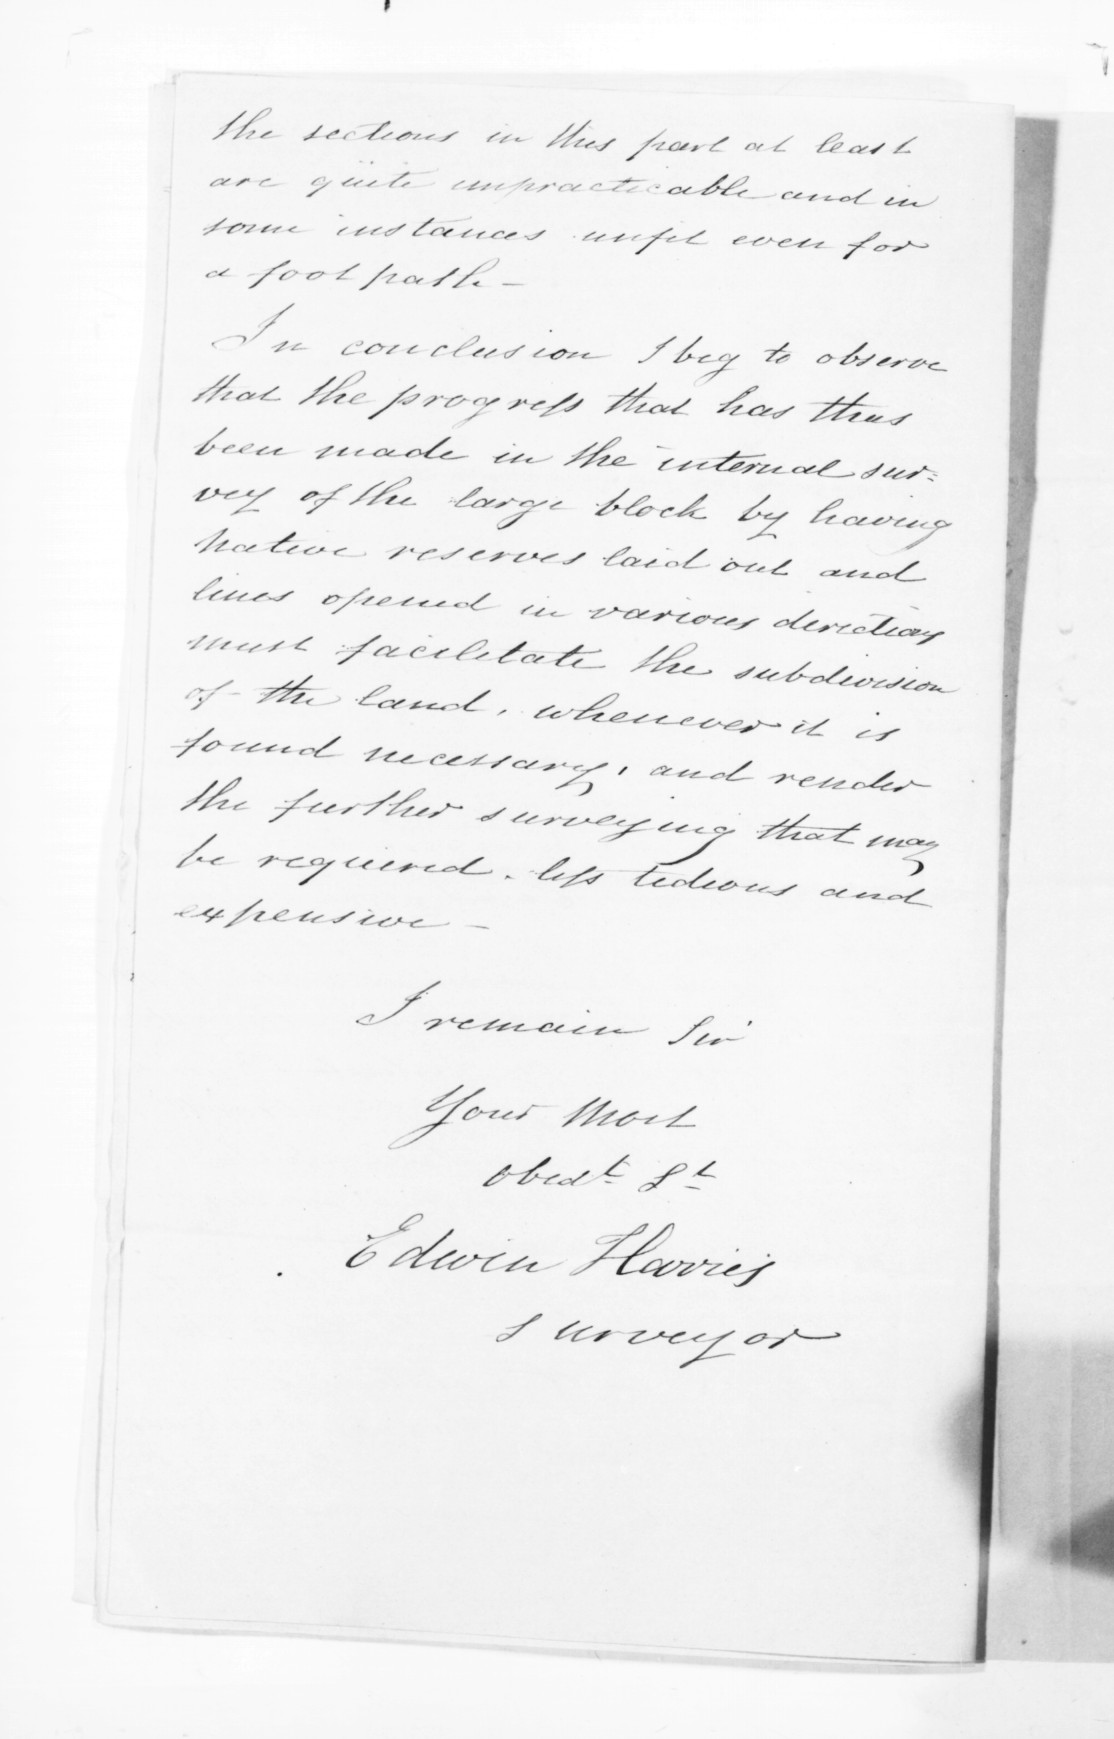 the sections in this part at least
are quite unpracticable and in
some instances unfit even for
a foot path –
In conclusion I beg to observe
that the progress that has thus
been made in the internal sur=
vey of the large block by having
native reserves laid out and
lines opened in various directions
must facilitate the subdivision
of the land, whenever it is
found necessary, and render
the further surveying that may
be required. less tedious and
expensive –
I remain Sir
Your Most
Obedt St
Edwin Harris
Surveyor